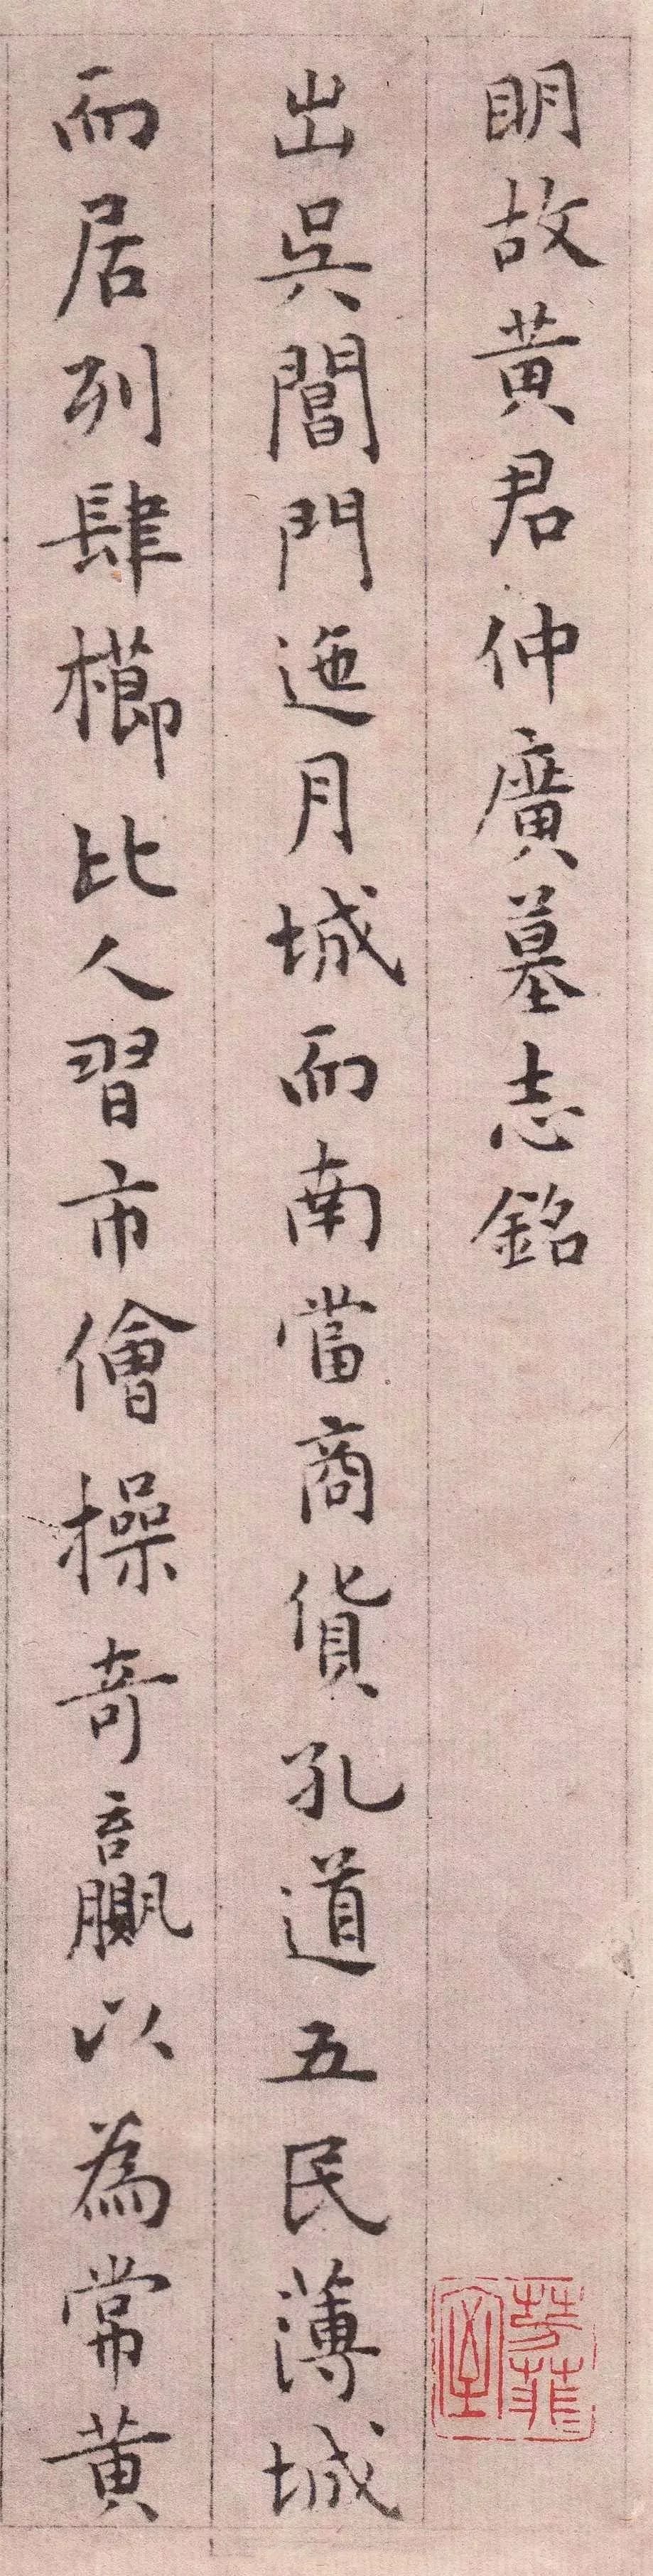 明故黄君仲廣墓志銘
出吳閶門迤月城而南當商貨孔道五民薄城
而居列肆櫛比人習市儈操奇贏以為常黄